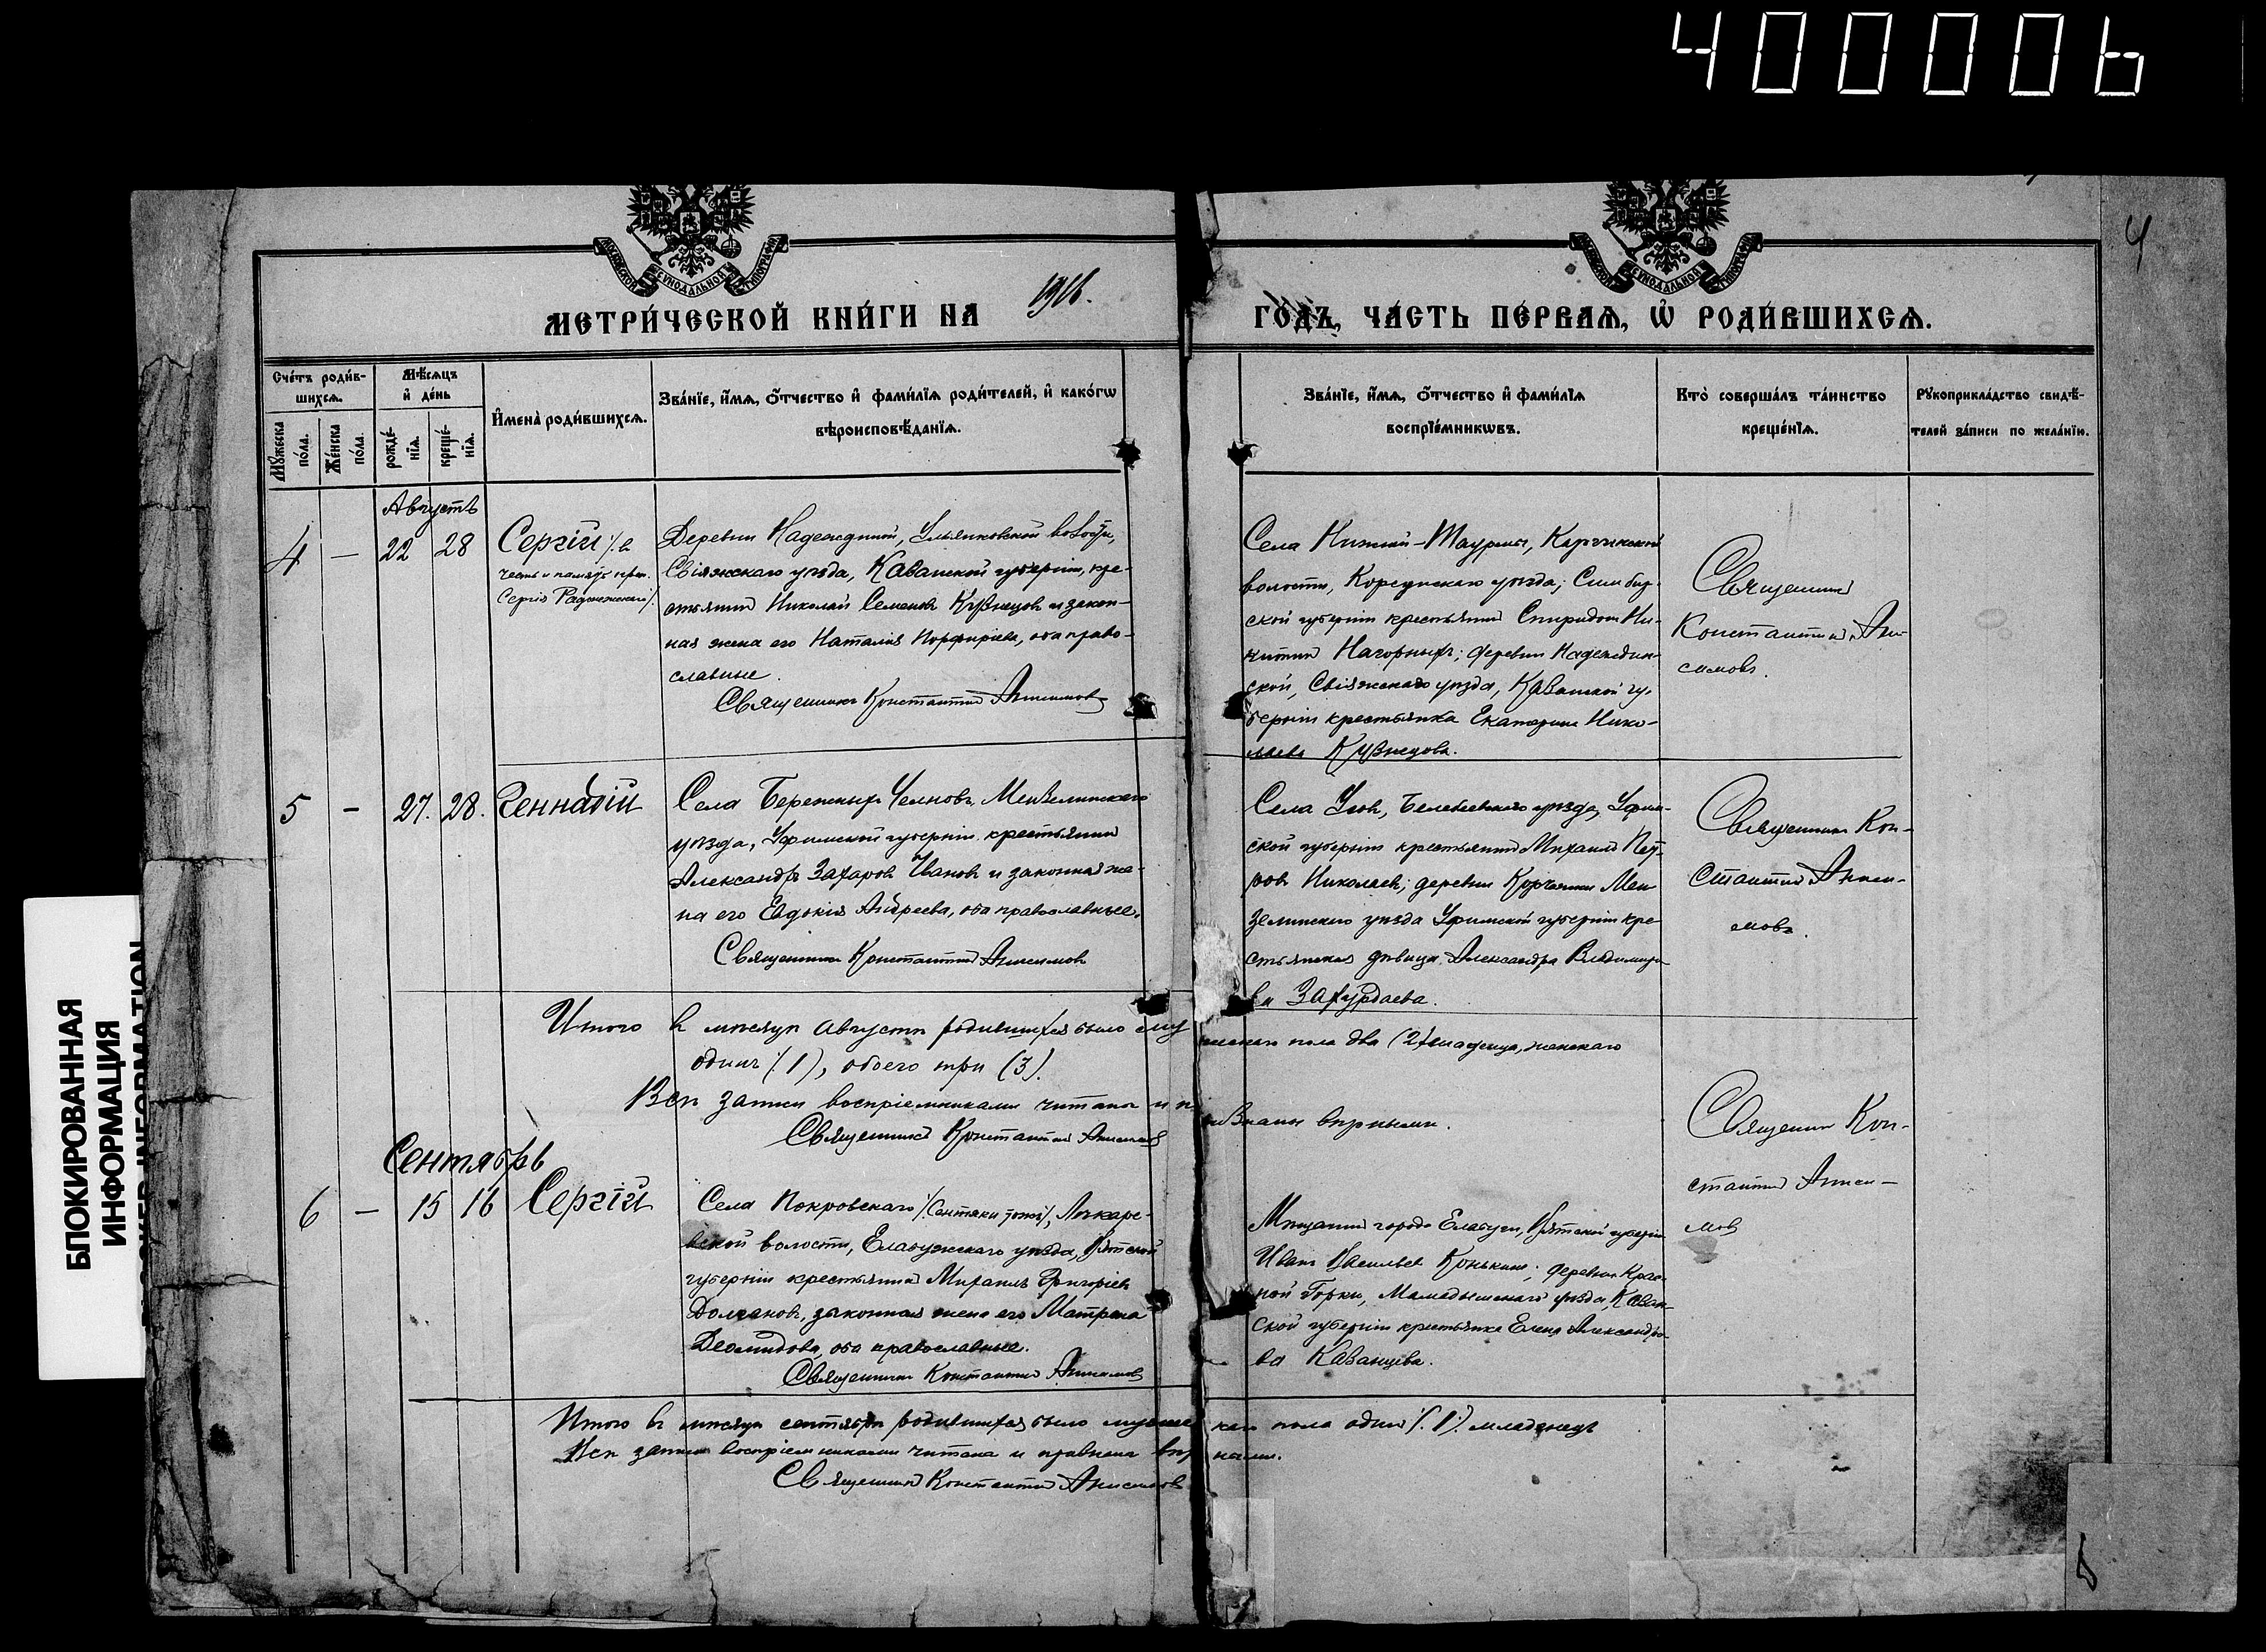 400006
4
МОСКОВСКОЙ СѴНОДАЛЬНОЙ ТИПОГРАФІИ
МОСКОВСКОЙ СѴНОДАЛЬНОЙ ТИПОГРАФІИ
МЕТРИ́ЧЕСКОЙ КНИ́ГИ НА 1916. ГО́ДЪ, ЧА́СТЬ ПЕ́РВАѦ, Ѡ҆ РОДИ́ВШИХСѦ.
Сче́тъ роди́в-
шихсѧ.
Мꙋ́жеска по́ла.
Же́нска по́ла.
Мѣ́сѧцъ
и҆ де́нь
рожде́-
нїѧ.
креще́-
нїѧ.
И҆мена̀ роди́вшихсѧ.
Зва́нїе, и҆́мѧ, ѻ҆́тчество и҆ фами́лїѧ роди́телей, и҆ како́гѡ
вѣроисповѣ́данїѧ.
Зва́нїе, и҆́мѧ, ѻ҆́тчество и҆ фами́лїѧ
воспрїе́мникѡвъ.
Кто̀ соверша́лъ та́инство
креще́нїѧ.
Рꙋкоприкла́дство свидѣ́-
телей за́писи по жела́нїю.
Августъ
4 — 22 28 Сергій /: въ
честь и память преп.
Сергія Радонежскаго :/
Деревни Надеждиной, Ульянковской волости,
Свіяжскаго уѣзда, Казанской губерніи, кре-
стьянинъ Николай Семеновъ Кузнецовъ и закон-
ная жена его Наталія Порфиріева, оба право-
славные.
Священникъ Константинъ Анисимовъ
Села Нижній-Таурмы,
волости, Корсунскаго уѣзда, Симбир-
ской губерніи крестьянинъ Спиридонъ Ни-
китинъ Нагорныхъ; деревни Надеждин-
ской, Свіяжскаго уѣзда, Казанской гу-
берніи крестьянка Екатерина Нико-
лаева Кузнецова.
Священникъ
Константинъ Ани-
симовъ.
5 — 27. 28. Геннадій
Села Бережныхъ Челновъ, Мензелинскаго
уѣзда, Уфимской губерніи крестьянинъ
Александръ Захаровъ Ивановъ и законная же-
на его Евдокія Андреева, оба православные.
Священникъ Константинъ Анисимовъ
Села Белебеевскаго уѣзда, Уфим-
ской губерніи крестьянинъ Михаилъ Пет-
ровъ Николаевъ; деревни Мен-
зелинскаго уѣзда Уфимской губерніи кре-
стьянская дѣвица Александра Владиміро-
ва Захурдаева.
Священникъ Кон-
стантинъ Аниси-
мовъ.
Итого въ мѣсяцѣ августѣ родившихся было мужескаго пола два (2) младенца, женскаго
одинъ (1), обоего три (3).
Всѣ записи воспріемниками читаны и признаны вѣрными.
Священникъ Константинъ Анисимовъ
Священникъ Кон-
стантинъ Аниси-
мовъ
Сентябрь
6 — 15 16 Сергій
Села Покровскаго /: тожъ :/,
волости, Елабужскаго уѣзда, Вятской
губерніи крестьянинъ Михаилъ Григоріевъ
Долгановъ, законная жена его Матрона
Деомидова, оба православные.
Священникъ Константинъ Анисимовъ
Мѣщанинъ города Елабуги, Вятской губерніи
Иванъ Васильевъ Конькинъ; деревни Крас-
ной Горки, Мамадышскаго уѣзда, Казан-
ской губерніи крестьянка Елена Александро-
ва Казанцева.
Итого въ мѣсяцѣ сентябрѣ родившихся было мужескаго пола одинъ /: 1 :/ младенецъ
Всѣ записи воспріемниками читаны и признаны вѣрными.
Священникъ Константинъ Анисимовъ
БЛОКИРОВАННАЯ
ИНФОРМАЦИЯ